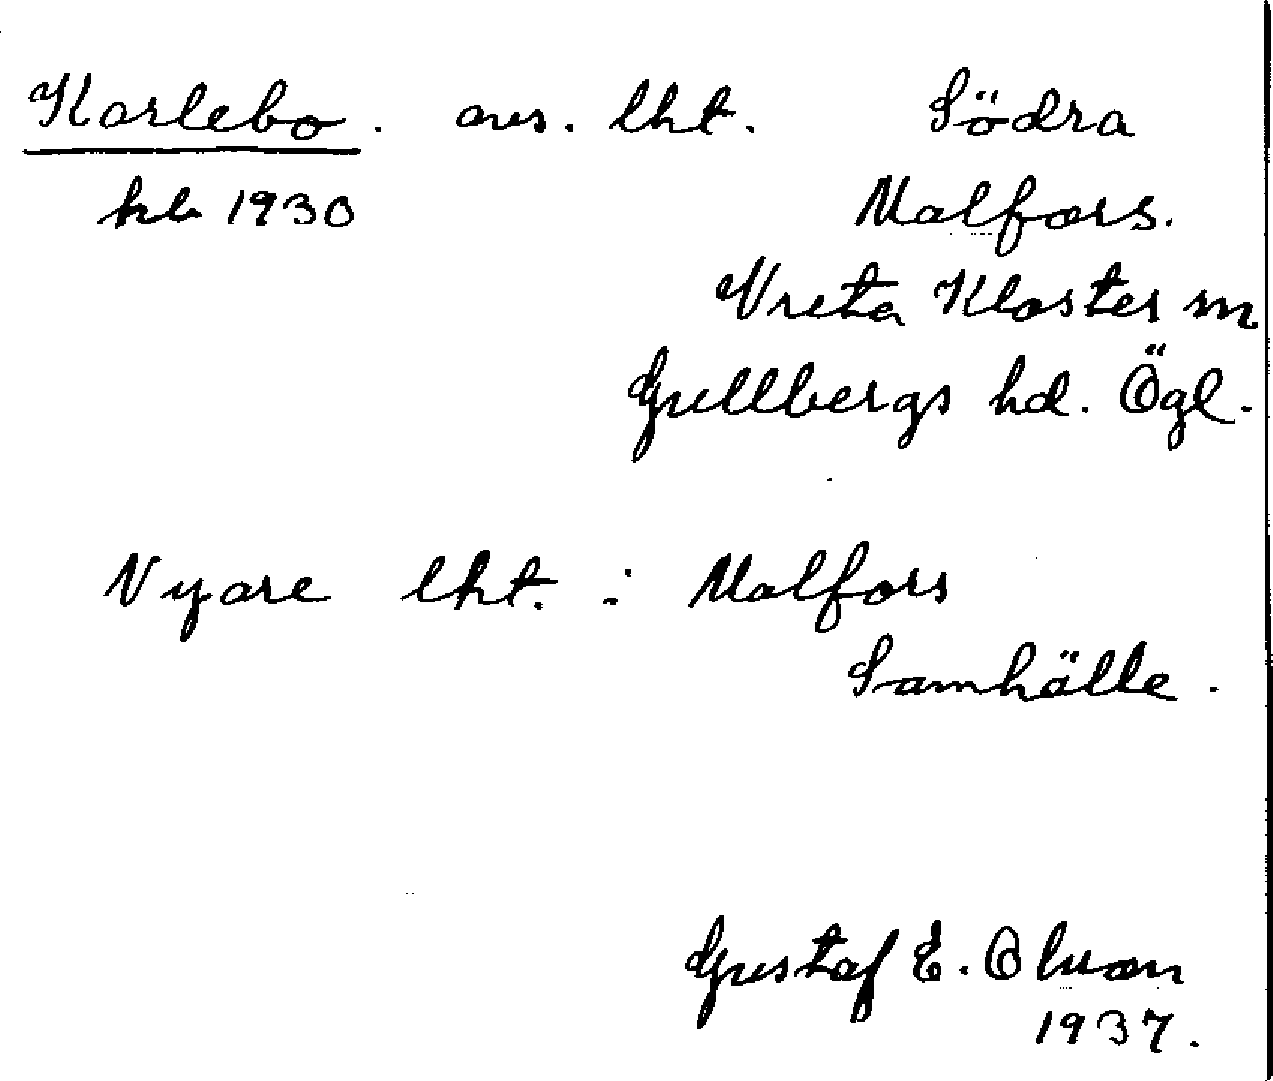 Karlebo. avs. lht. Södra
kb 1930 Malfors.
Vreta Kloster sn
Gullbergs hd. Ögl.
Nyare lht. : Malfors
Samhälle.
Gustaf E. Olson
1937.